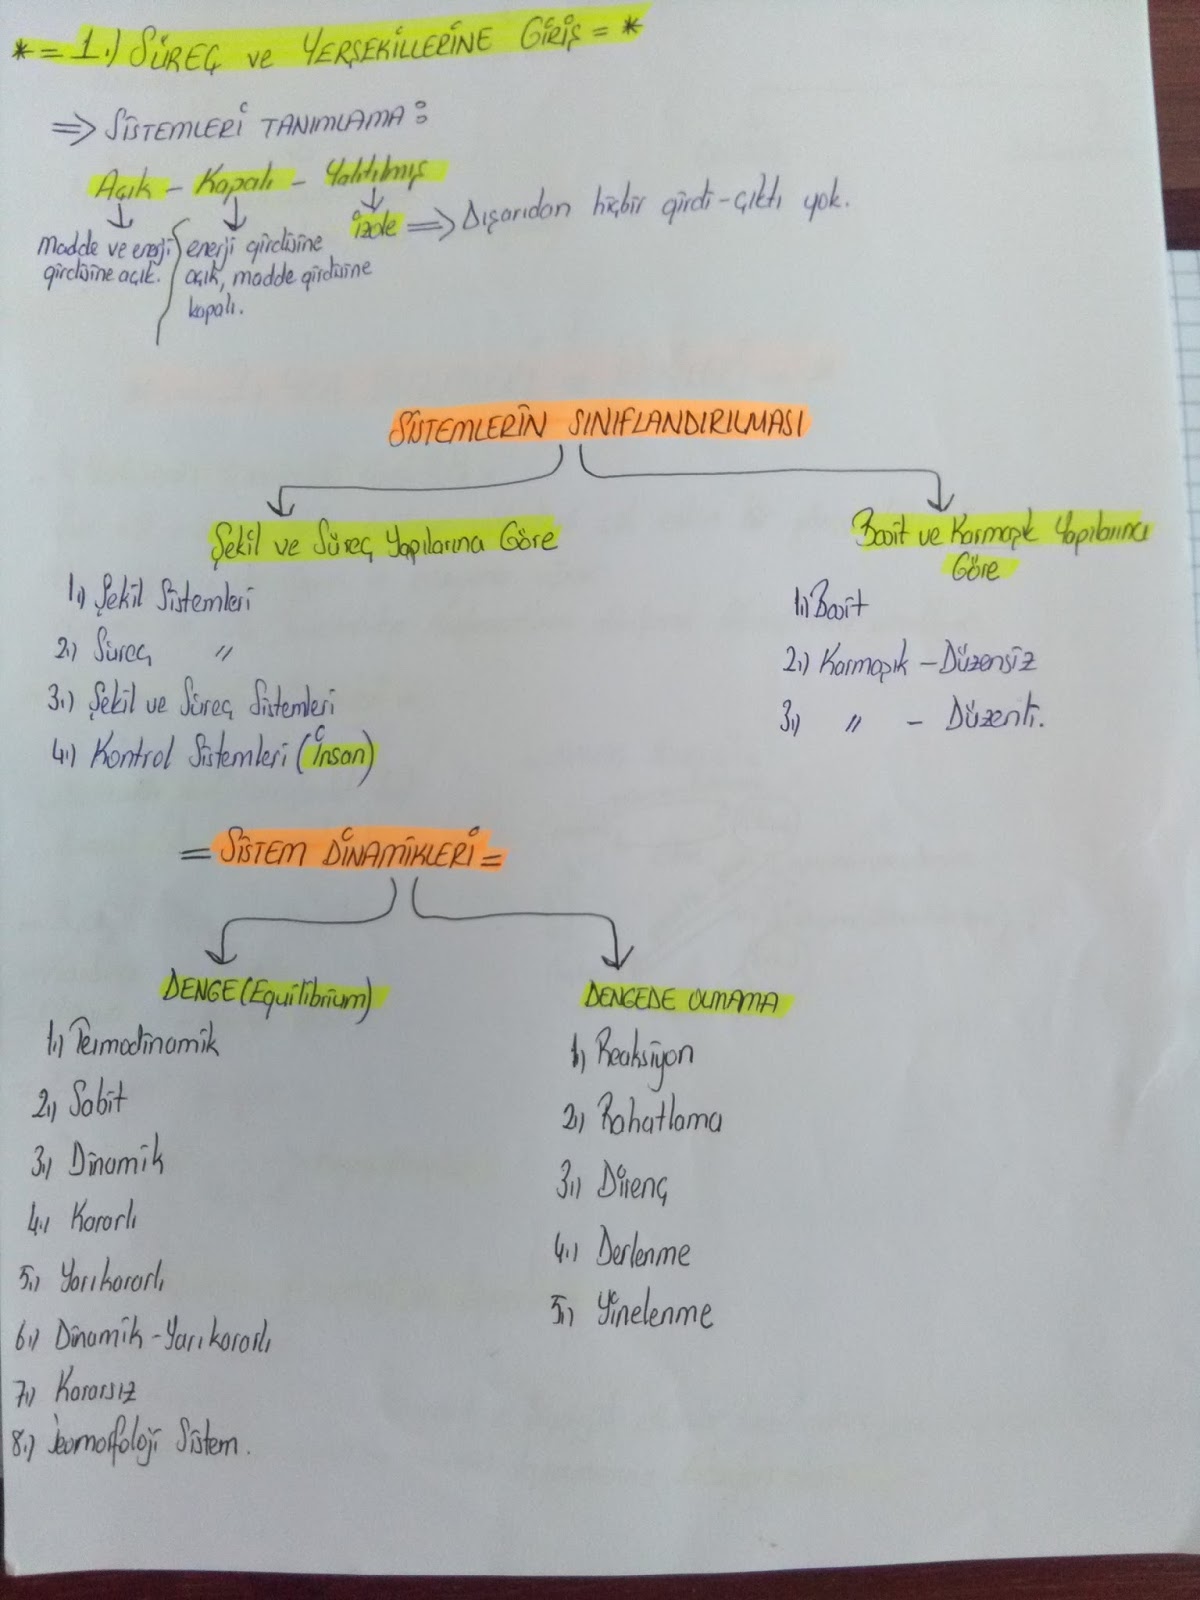 * = 1.) SÜREÇ ve YERŞEKİLLERİNE GİRİŞ = *
⇒ SİSTEMLERİ TANIMLAMA :
Açık - Kapalı - Yalıtılmış
izole ⇒ Dışarıdan hiçbir girdi-çıktı yok.
madde ve enerji
girdisine açık.
enerji girdisine
açık, madde girdisine
kapalı.
SİSTEMLERİN SINIFLANDIRILMASI
Şekil ve Süreç Yapılarına Göre
1.) Şekil Sistemleri
2.) Süreç "
3.) Şekil ve Süreç Sistemleri
4.) Kontrol Sistemleri (İnsan)
Basit ve Karmaşık Yapılarına
Göre
1.) Basit
2.) Karmaşık - Düzensiz
3.) " - Düzenli.
= SİSTEM DİNAMİKLERİ =
DENGE (Equilibrium)
1.) Termodinamik
2.) Sabit
3.) Dinamik
4.) Kararlı
5.) Yarıkararlı
6.) Dinamik-Yarıkararlı
7.) Kararsız
8.) Jeomorfoloji Sistem.
DENGEDE OLMAMA
1.) Reaksiyon
2.) Rahatlama
3.) Direnç
4.) Derlenme
5.) Yinelenme